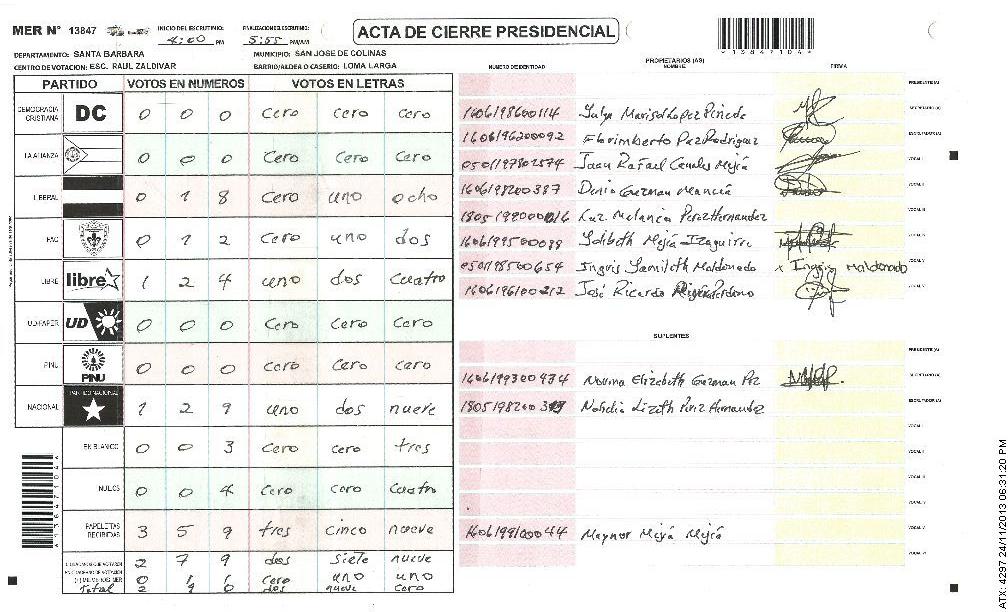 MER N° 13847
INICIO DEL ESCRUTINIO: 4:00 PM
FINALIZACION ESCRUTINIO: 5:55 PM/AM
ACTA DE CIERRE PRESIDENCIAL
*13847104*
DEPARTAMENTO: SANTA BARBARA
MUNICIPIO: SAN JOSE DE COLINAS
CENTRO DE VOTACION: ESC. RAUL ZALDIVAR
BARRIO/ALDEA O CASERIO: LOMA LARGA
PARTIDO VOTOS EN NUMEROS VOTOS EN LETRAS
DEMOCRACIA CRISTIANA DC 0 0 0 cero cero cero
LA ALIANZA 0 0 0 cero cero cero
LIBERAL 0 1 8 cero uno ocho
PAC 0 1 2 cero uno dos
LIBRE libre 1 2 4 uno dos cuatro
UD-FAPER UD 0 0 0 cero cero cero
PINU PINU 0 0 0 cero cero cero
NACIONAL PARTIDO NACIONAL 1 2 9 uno dos nueve
EN BLANCO 0 0 3 cero cero tres
NULOS 0 0 4 cero cero cuatro
PAPELETAS RECIBIDAS 3 5 9 tres cinco nueve
2 7 9 dos siete nueve
0 1 1 cero uno uno
Total 2 9 0 dos nueve cero
PROPIETARIOS (AS)
NUMERO DE IDENTIDAD NOMBRE FIRMA
PRESIDENTE (A)
1606198600114 Lopez Pineda SECRETARIO (A)
1606196200092 Florimberto Paz Rodriguez ESCRUTADOR (A)
0501197802574 Juan Rafael Canales Mejia VOCAL I
1606198200387 Denia Guzman Mancia VOCAL II
Luz Melania Perez Hernandez VOCAL III
1606199500099 Mejia Izaguirre VOCAL IV
0501198500654 Ingris Yamileth Maldonado x Ingris Maldonado VOCAL V
1606196100212 José Ricardo VOCAL VI
SUPLENTES
PRESIDENTE (A)
1606199300434 Norma Elizabeth Guzman Paz SECRETARIO (A)
Natalia Lizeth Perez Hernandez ESCRUTADOR (A)
VOCAL I
VOCAL II
VOCAL III
VOCAL IV
1606199100044 Maynor Mejia Mejia VOCAL V
VOCAL VI
ATX: 4297 24/11/2013 06:31:20 PM